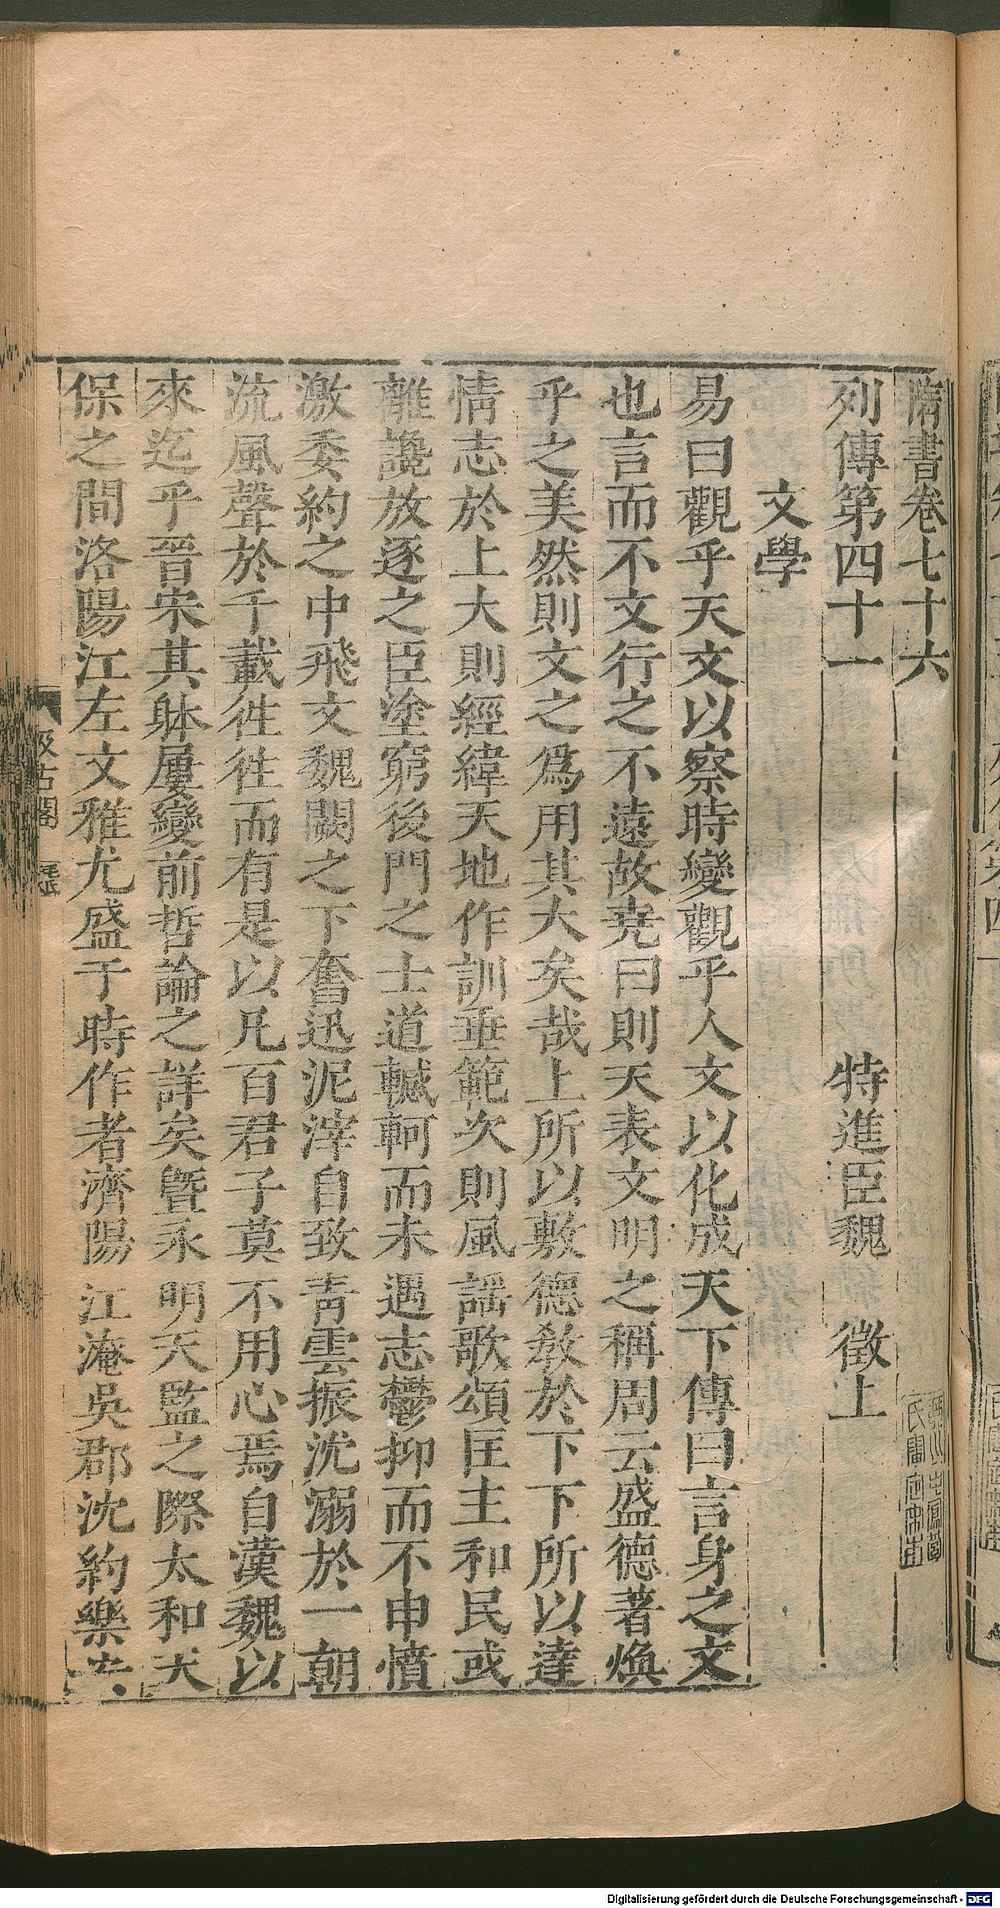 隋書卷七十六
列傳第四十一　特進臣魏　徵上
文學
易曰觀乎天文以察時變觀乎人文以化成天下傳曰言身之文
也言而不文行之不遠故堯曰則天表文明之稱周云盛德著煥
乎之美然則文之爲用其大矣哉上所以敷德敎於下下所以達
情志於上大則經緯天地作訓垂範次則風謡歌頌匡主和民或
離讒放逐之臣塗窮後門之士道轗軻而未遇志鬱抑而不申憤
激委約之中飛文魏闕之下奮迅泥滓自致青雲振沈溺於一朝
流風聲於千載徃徃而有是以凡百君子莫不用心焉自漢魏以
來迄乎晉宋其躰屢變前哲論之詳矣曁永明天監之際太和天
保之間洛陽江左文雅尤盛于時作者濟陽江淹吳郡沈約樂安
汲古閣
Digitalisierung gefördert durch die Deutsche Forschungsgemeinschaft - DFG